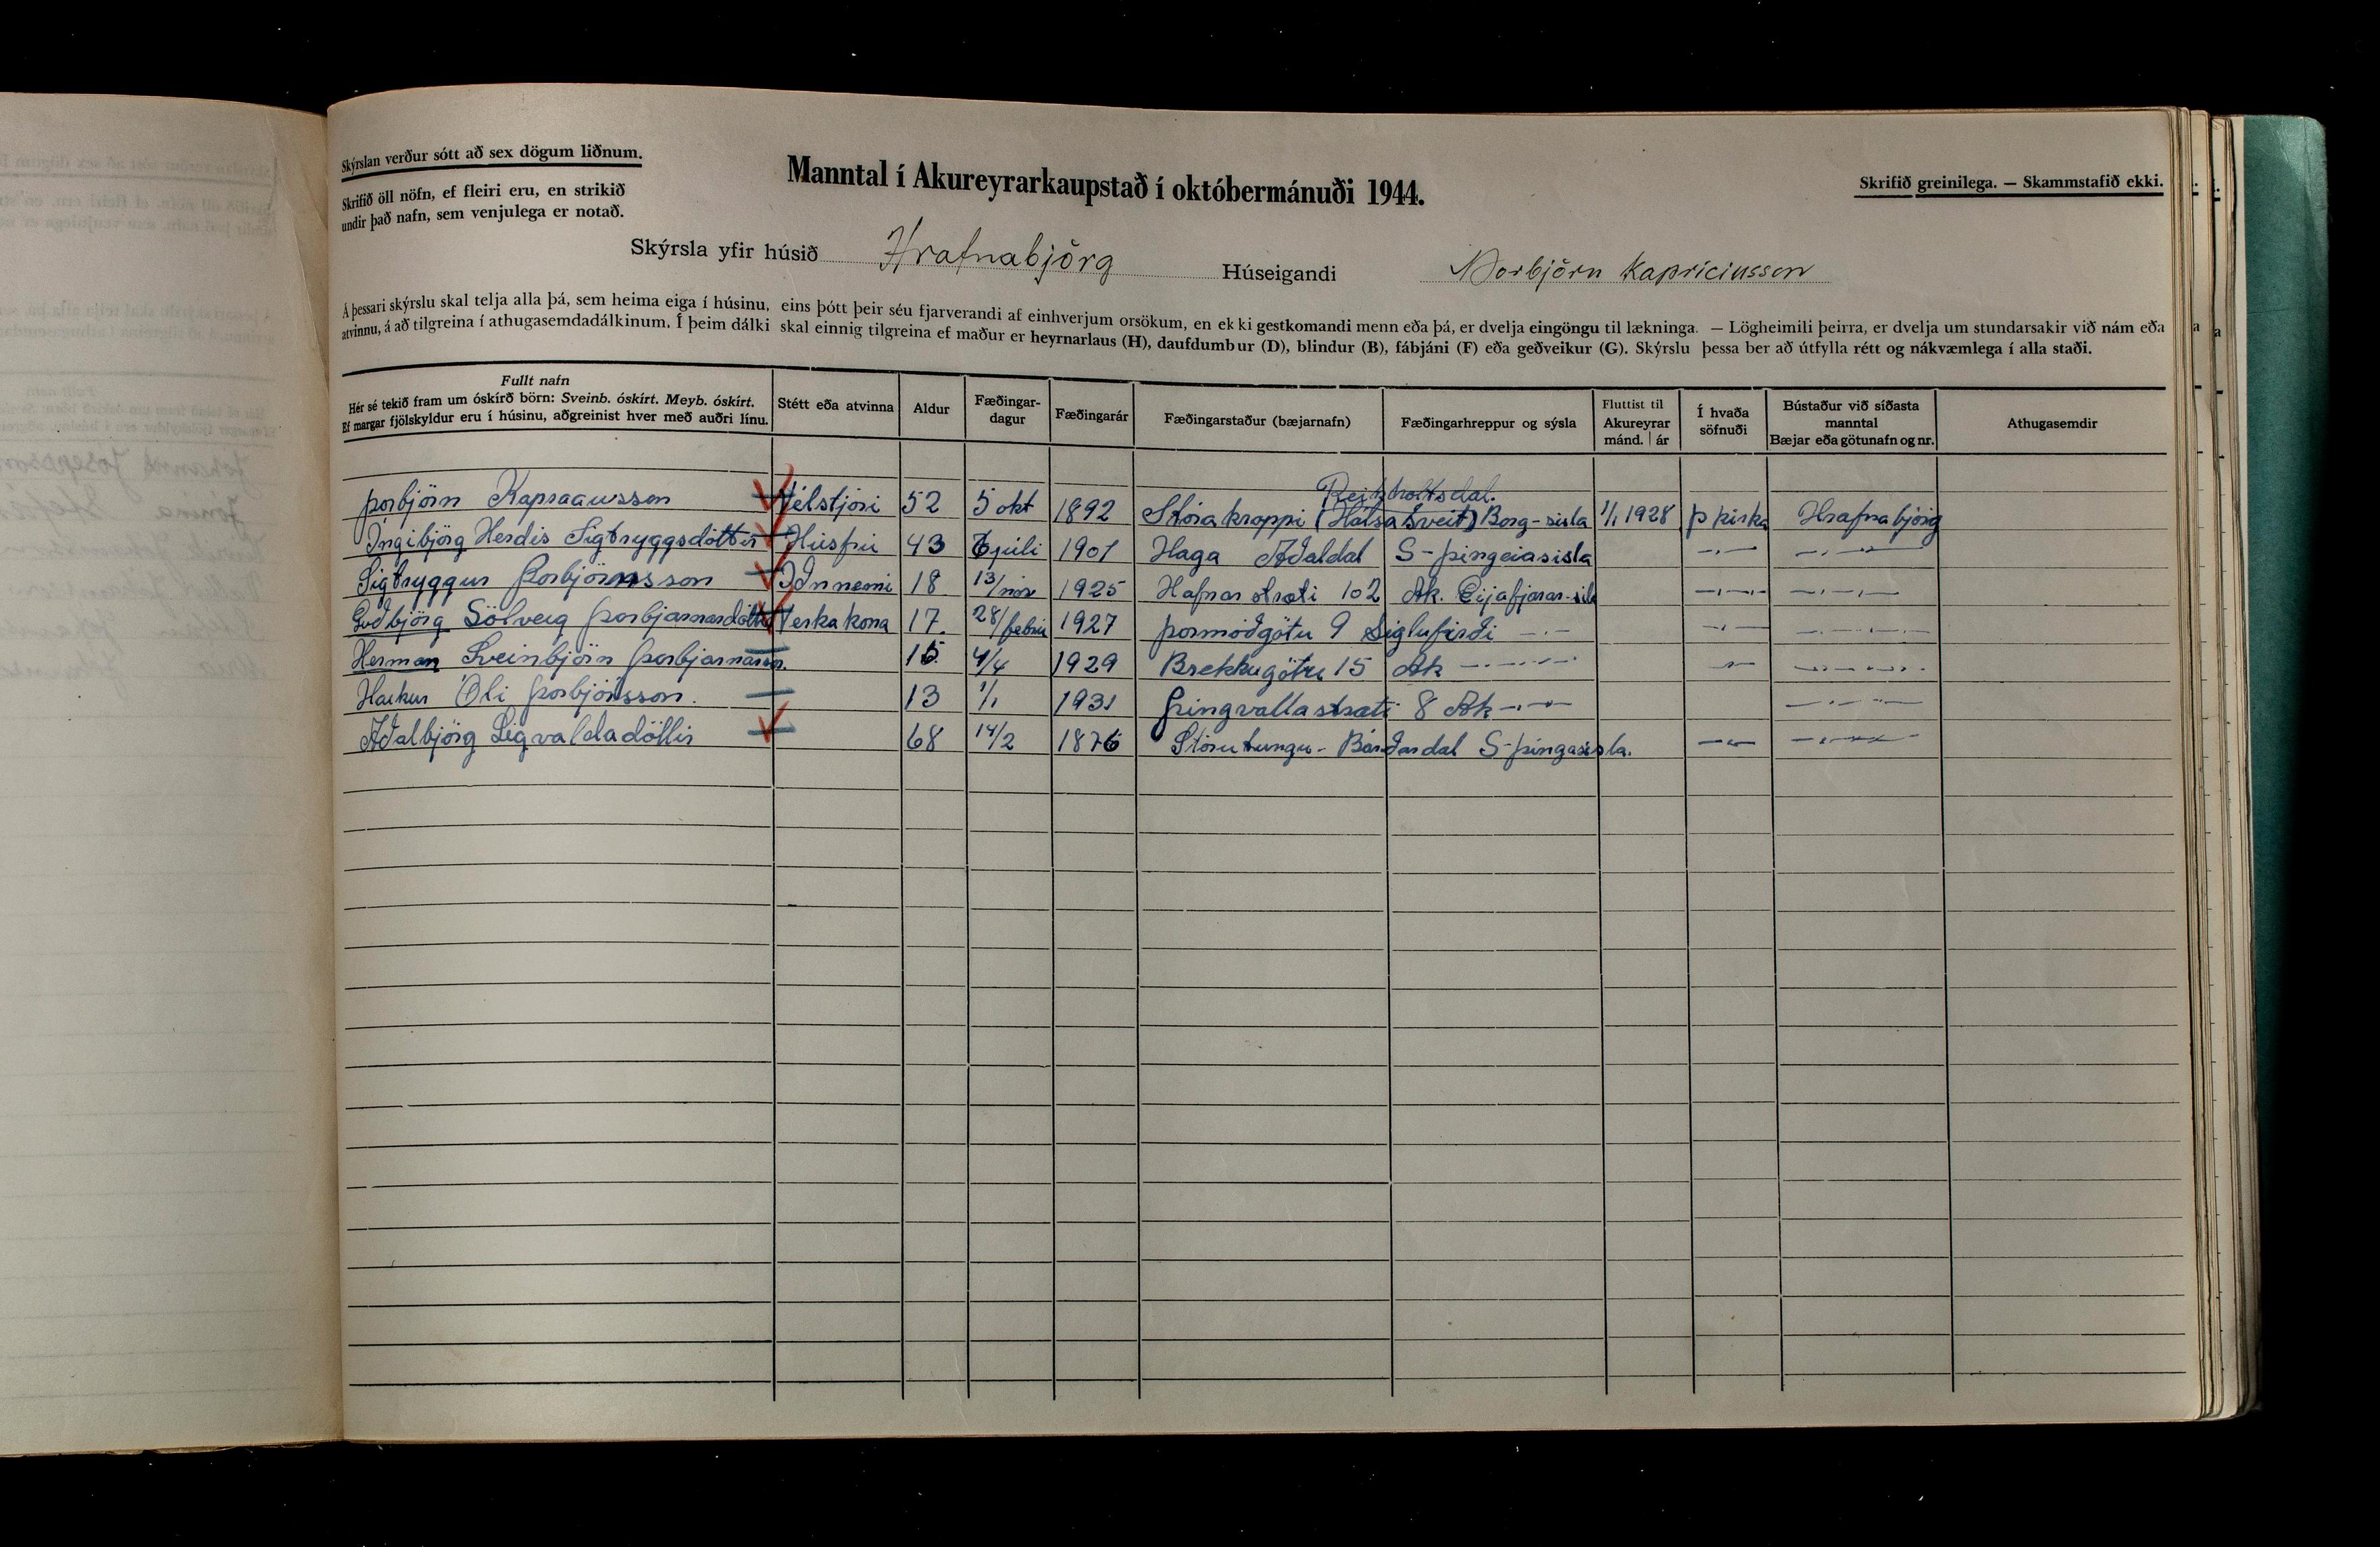 Skýrslan verður sótt að sex dögum liðnum.
Skrifið öll nöfn, ef fleiri eru, en strikið
undir það nafn, sem venjulega er notað.
Manntal í Akureyrarkaupstað í októbermánuði 1944.
Skrifið greinilega. — Skammstafið ekki.
Skýrsla yfir húsið Hrafnabjörg Húseigandi Þorbjörn Kapriciusson
Á þessari skýrslu skal telja alla þá, sem heima eiga í húsinu, eins þótt þeir séu fjarverandi af einhverjum orsökum, en ekki gestkomandi menn eða þá, er dvelja eingöngu til lækninga. — Lögheimili þeirra, er dvelja um stundarsakir við nám eða
atvinnu, á að tilgreina í athugasemdadálkinum. Í þeim dálki skal einnig tilgreina ef maður er heyrnarlaus (H), daufdumbur (D), blindur (B), fábjáni (F) eða geðveikur (G). Skýrslu þessa ber að útfylla rétt og nákvæmlega í alla staði.
Fullt nafn
Hér sé tekið fram um óskírð börn: Sveinb. óskírt. Meyb. óskírt.
Ef margar fjölskyldur eru í húsinu, aðgreinist hver með auðri línu.
Stétt eða atvinna
Aldur
Fæðingar-
dagur
Fæðingarár
Fæðingarstaður (bæjarnafn)
Fæðingarhreppur og sýsla
Fluttist til
Akureyrar
mánd. | ár
Í hvaða
söfnuði
Bústaður við síðasta
manntal
Bæjar eða götunafn og nr.
Athugasemdir
Reikholtsdal.
Þorbjörn Vélstjóri 52 5 okt 1892 Stóra kroppi (Hálsa sveit) Borg-sisla 1/1 1928 Þ kirka Hrafnabjörg
Ingibjörg Herdis Sigtryggsdóttir Húsfrú 43 júli 1901 Haga Aðaldal S-þingeiasisla —·— —·—
Sigtryggur Þorbjörnsson Iðnnemi 18 13/nóv 1925 Hafnarstræti 102 Ak. —·— —·—
Guðbjörg Sölveig Þorbjarnardóttir Verkakona 17 28/febrú 1927 Þormóðgötu 9 Siglufirði —·— —·— —·—
Herman Sveinbjörn Þorbjarnarson. 15 4/4 1929 Brekkugötu 15 Ak —·— —·— —·—
Haukur Óli Þorbjörnsson. 13 1/1 1931 Þingvallastræti 8 Ak —·— —·—
Aðalbjörg Sigvaldadóttir 68 14/2 1876 Stórutungu - Bárðardal S-þingasisla. —·— —·—